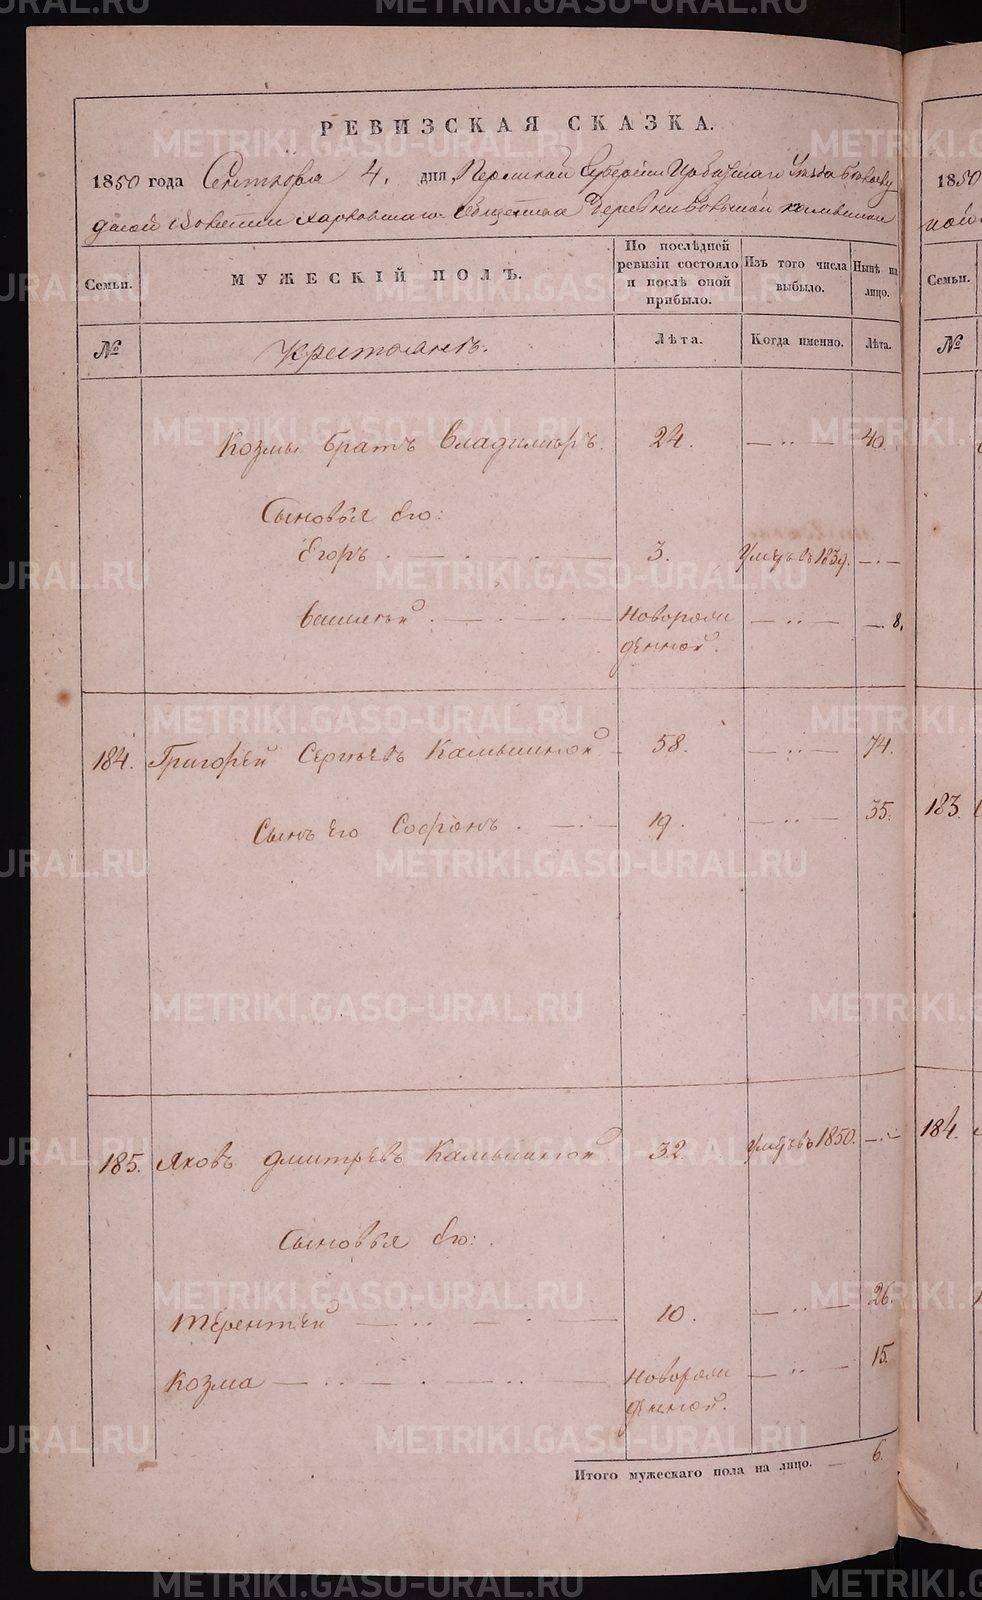 РЕВИЗСКАЯ СКАЗКА.
1850 года Сентября 4. дня, Пермской Губернии Ирбитскаго Уезда
ской Волости Харловскаго Общества Деревни Большой Камышной
Семьи. МУЖЕСКІЙ ПОЛЪ. По послѣдней ревизіи состояло и послѣ оной прибыло. Изъ того числа выбыло. Нынѣ на лицо.
№ Крестьянъ. Лѣта. Когда именно. Лѣта.
Козмы братъ Владимиръ. 24. — " — 40.
Сыновья его:
Егоръ . — . — . — 3. Умеръ въ 1839. — . —
Василей . — . — . — Новорож — " — — 8.
денной.
184. Григорей Сергѣевъ Камышной — 58. — " — 74.
Сынъ его Софронъ . — . — 19. — " — 35.
185. Яковъ Дмитрѣевъ Камышной 32. Умеръ въ 1850. — . —
Сыновья его:
Терентей — .. — . — 10. — " — 26.
Козма — .. — . — .. — Новорож — " — 15.
денной.
Итого мужескаго пола на лицо. — 6.
1850
ной
Семьи.
№
183.
184.
METRIKI.GASO-URAL.RU